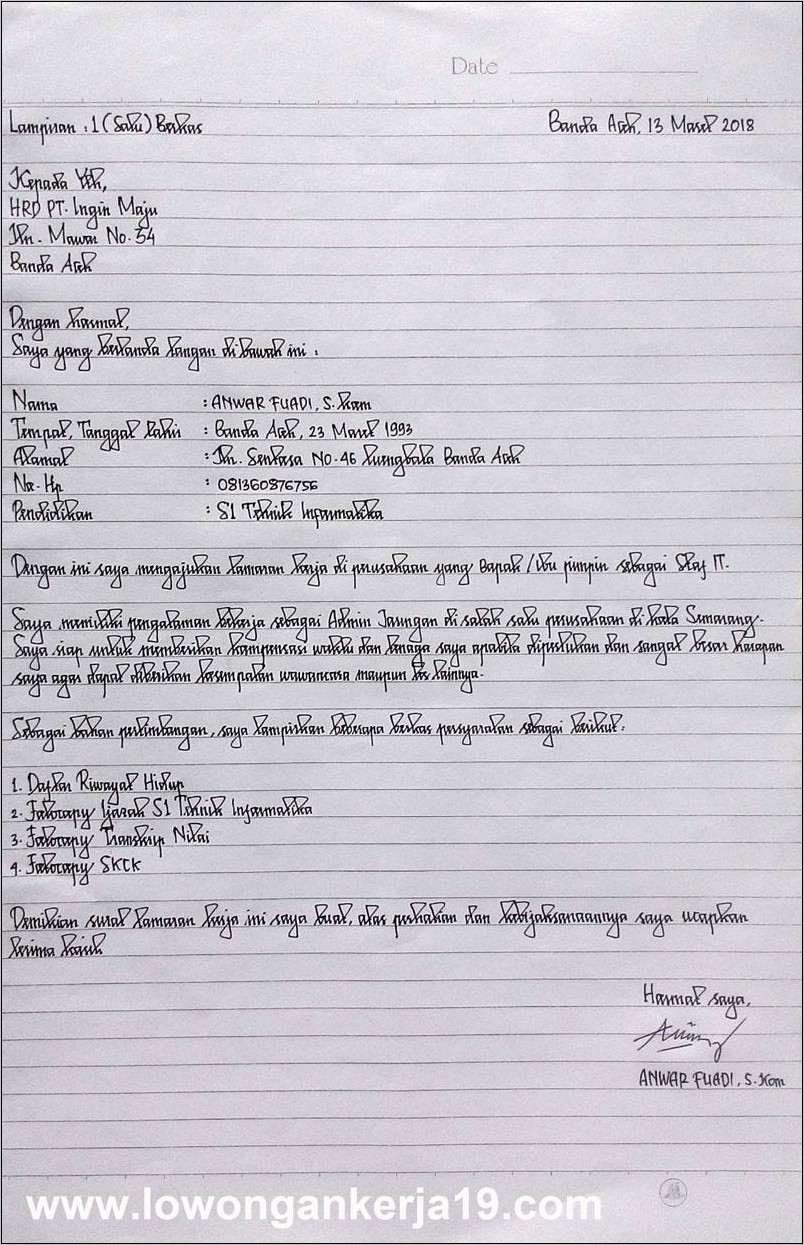 Date
Lampiran : 1 (Satu) Berkas Banda Aceh, 13 Maret 2018
Kepada Yth,
HRD PT. Ingin Maju
Jln. Mawar No. 54
Banda Aceh
Dengan hormat,
Saya yang bertanda tangan di bawah ini :
Nama : ANWAR FUADI, S. Kom
Tempat, Tanggal Lahir : Banda Aceh, 23 Maret 1993
Alamat : Jln. Sentosa No. 46 Luengbata Banda Aceh
No. Hp : 081360876756
Pendidikan : S1 Teknik Informatika
Dengan ini saya mengajukan lamaran kerja di perusahaan yang Bapak / Ibu pimpin sebagai Staf IT.
Saya memiliki pengalaman bekerja sebagai Admin Jaringan di salah satu perusahaan di kota Semarang.
Saya siap untuk memberikan kompensasi waktu dan tenaga saya apabila diperlukan dan sangat besar harapan
saya agar dapat diberikan kesempatan wawancara maupun tes lainnya.
Sebagai bahan pertimbangan, saya lampirkan beberapa berkas persyaratan sebagai berikut :
1. Daftar Riwayat Hidup
2. Fotocopy Ijazah S1 Teknik Informatika
3. Fotocopy Transkip Nilai
4. Fotocopy SKCK
Demikian surat lamaran kerja ini saya buat, atas perhatian dan kebijaksanaannya saya ucapkan
terima kasih
Hormat saya,
ANWAR FUADI, S. Kom
www.lowongankerja19.com